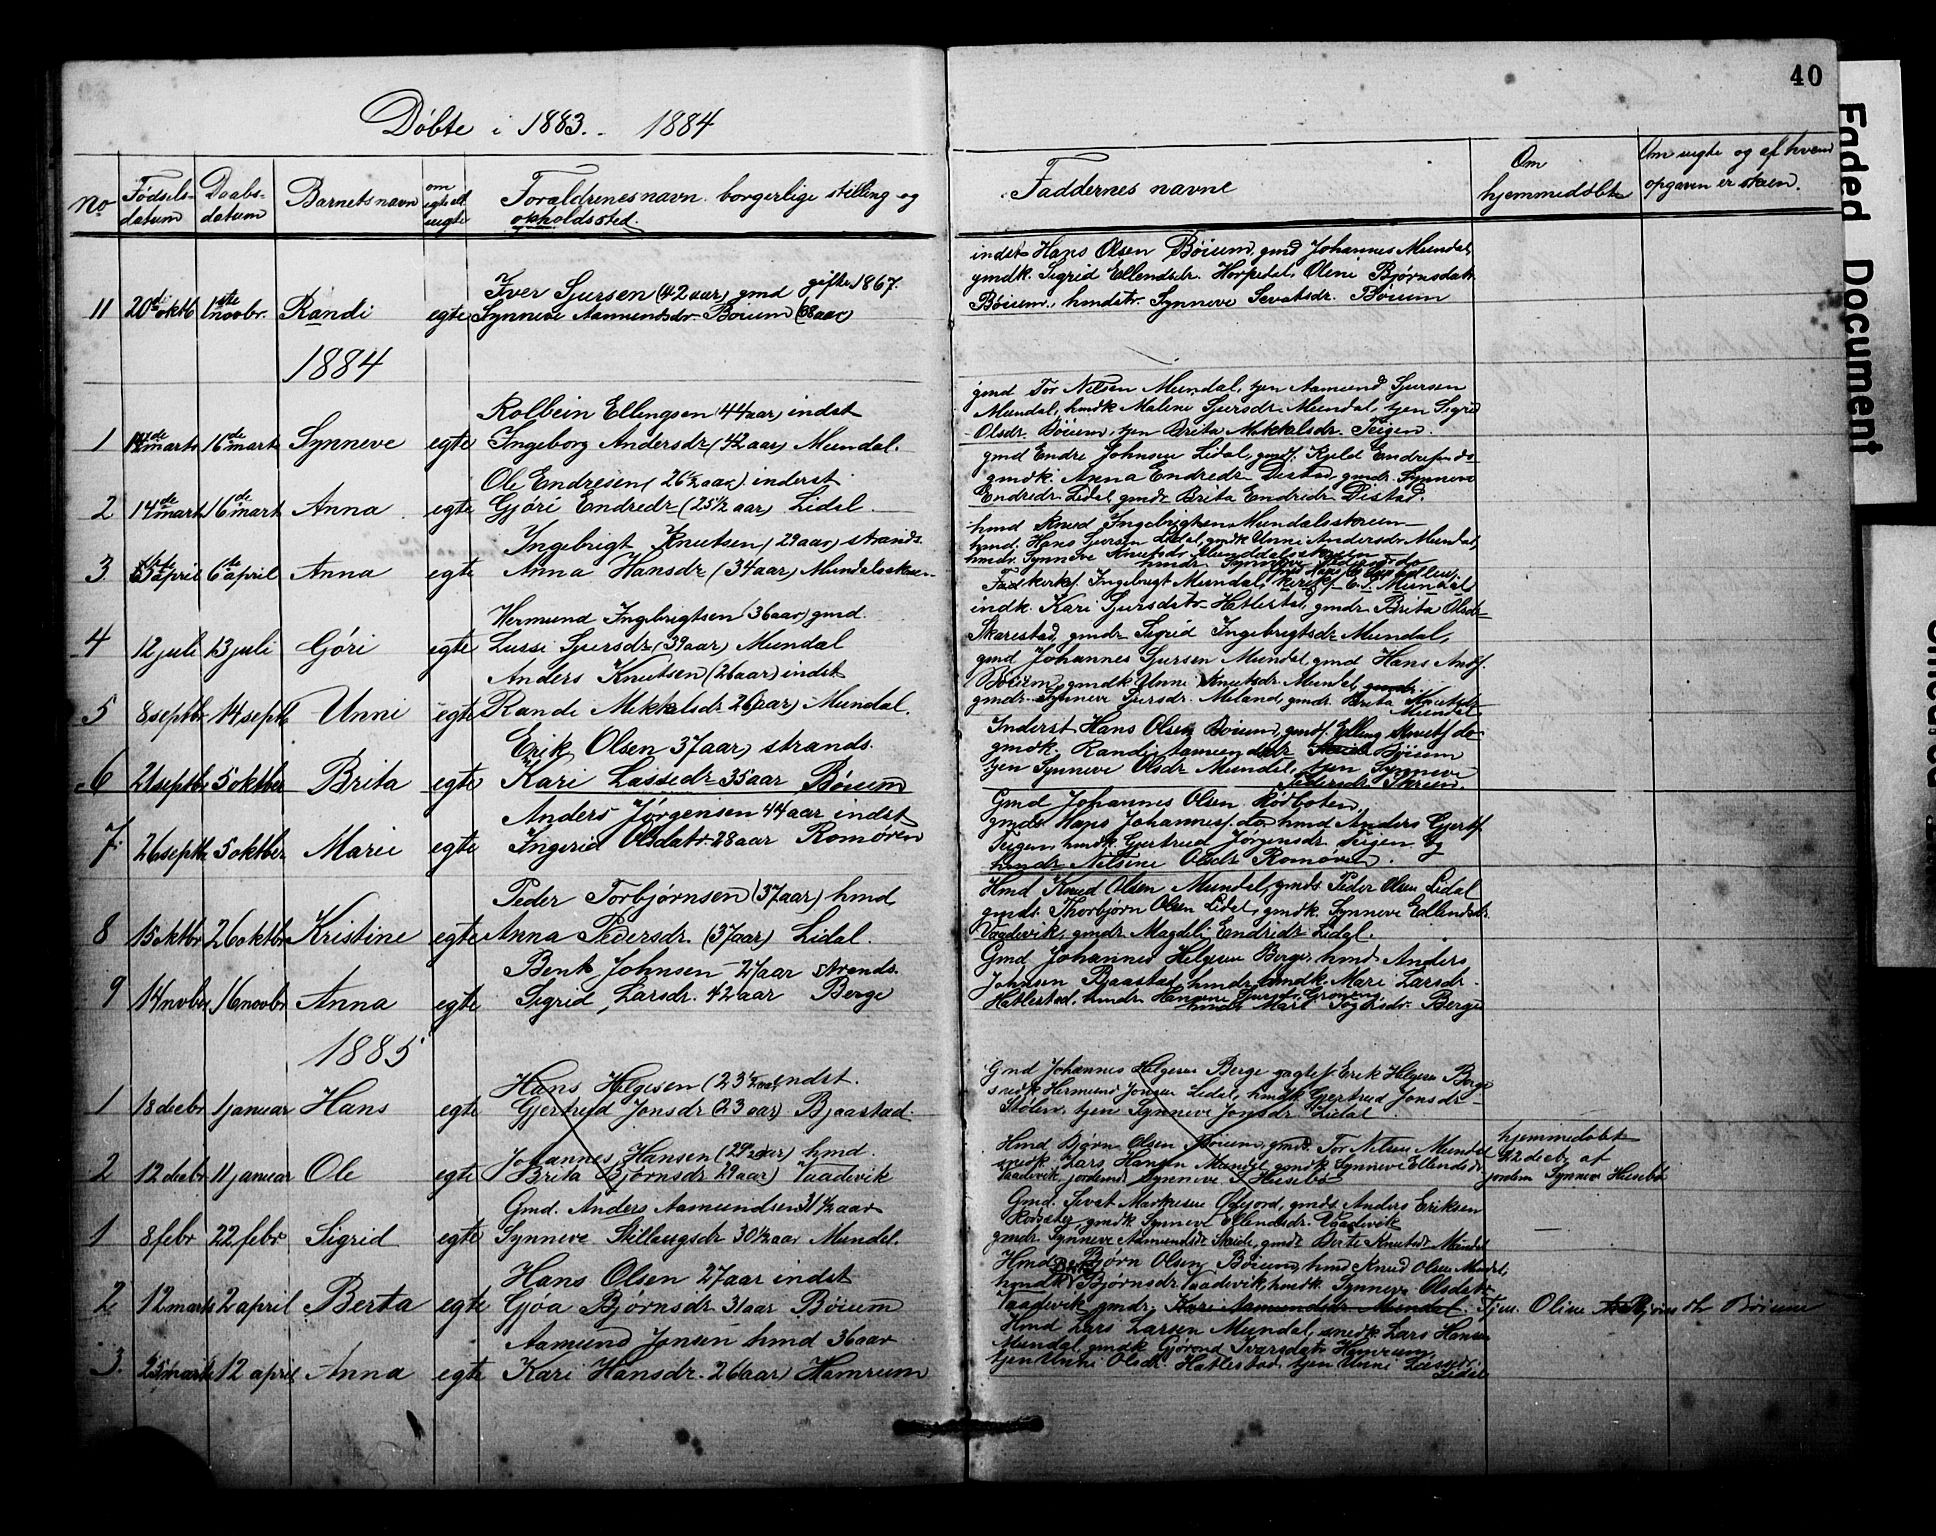 40
Døbte i 1883. - 1884
No Fødsels- datum Daabs- datum Barnets navn om egte ell. uegte Forældrenes navn borgerlige stilling og opholdssted.
Faddernes navne
Om hjemmedøbt
Om uegte og af hvem opgaven er skeen.
11 20de oktb 1ste novbr. Randi egte Iver Sjursen (42 aar) gmd gifte 1867.
Synneve Aamundsdr Bøium (38 aar)
indst Hans Olsen Bøium, gmd Johannes Mundal,
gmdk. Sigrid Ellendsdr. Horpedal, Oline Bjørnsdatr
Bøium, hmdstr. Synneve Sevatsdr. Bøium
1884
1 14de marts 16de mart Synneve egte Kolbein Ellingsen (44 aar) indst
Ingeborg Andersdr (42 aar) Mundal.
gmd Tor Nilsen Mundal, tjen Aamund Sjursen
Mundal, hmdk Malene Sjursdr. Mundal, tjen Sigrid
Olsdr. Bøium, tjen Brita Mikkelsdr. Teigen
2 14de mart 16de mart Anna egte Ole Endresen (26½ aar) inderst
Gjøri Endredr (25½ aar) Lidal
gmd Endre Johnsen Lidal, gmds. Kjeld Endresen do
gmdk. Anna Endredr Distad, gmdr. Synneve
Endredr Lidal gmdr Brita Endredr Distad.
3 april 6de april Anna egte Ingebrigt Knutsen (29 aar) strands.
Anna Hansdr (34 aar) Mundalsskoren
hmd Knud Ingebrigtsen Mundalsskoren
hmd. Hans Sjursen Lidal, gmdk Unni Andersdr Mundal,
hmdr. Synneve Knutsdr Mundalsskoren
4 12 juli 13 juli Gøri egte Hermund Ingebrigtsen (36 aar) gmd.
Lussi Sjursdr (39 aar) Mundal
Fad kerkes. Ingebrigt Mundal,
indk. Kari Sjursdatr Hatlestad, gmdr Brita Olsdr
Skarestad, gmdr Sigrid Ingebrigtsdr Mundal,
5 8 septbr 14 septb Unni egte Anders Knutsen (26 aar) indst
Randi Mikkelsdr 26 aar) Mundal.
gmd Johannes Sjursen Mundal, gmd Hans Ands.
Bøium, gmdk Unni Knutsdr. Mundal,
gmdr Synneve Sjursdr. Meland, gmdr. Brita Knutsdr
Mundal
6 21 septbr 5 oktber Brita egte Erik Olsen 37 aar) strands.
Kari Lassedr 35 aar Bøium
Inderst Hans Olsen Bøium, gmds. Elling Knuts do
gmdk. Randi Aamundsdr Bøium
tjen Synneve Olsdr Mundal, tjen Synneve
Pedersdr. Skreien.
7. 26 septbr 5 oktber Marie egte Anders Jørgensen 44 aar indst
Ingerid Olsdatr 28 aar Romøren
Gmd Johannes Olsen Rødboten,
gmds. Hans Johannes. do hmd Anders Gjerts.
Teigen, hmdk Gjertrud Jørgensdr. Teigen og
hmdr Nilsine Olsdr Romøren.
8 15 oktbr 26 oktbr Kristine egte Peder Torbjørnsen (37 aar) hmd
Anna Pedersdr. (37 aar) Lidal.
Hmd Knud Olsen Mundal, gmds. Peder Olsen Lidal
gmds. Thorbjørn Olsen Lidal, gmdk. Synneve Ellendsdr.
Vaadevik, gmdr Magdeli Endredr Lidal.
9 14 novber 16 novbr Anna egte Benk Johnsen 27 aar strands.
Sigrid Larsdr. 42 aar Berge
Gmd Johannes Helgesen Berge, hmd Anders
Johnsen Bjaastad, hmdk. Mari Larsdr.
Hatlestad, hmdr. Hansine Sjursd. Grøvens,
hmdr. Mari Sogursdr. Berge
1885
1 18 decbr 1 januar Hans egte Hans Helgesen (23½ aar indst.
Gjertrud Jonsdr (23 aar) Bjaastad.
Gmd Johannes Helgesen Berge gaptes Erik Helgesen Berge
snedk Hermund Jonsen Lidal, hmdk Gjertrud Jonsdr
Stølen, tjen Synneve Jonsdr. Lidal
2 12 decbr 11 januar Ole egte Johannes Hansen (29½ aar) hmd.
Brita Bjørnsdr 29 aar) Vaadevik
Hmd Bjørn Olsen Bøium, gmd. Tor Nilsen Mundal
snedk. Lars Hansen Mundal, gmdk Synneve Ellendsdr
Vaadevik, jordemd. Synneve S Husebø
hjemmedøbt
12 decbr af
jordem Synneve Husebø
1 8 febr 22 febr Sigrid egte Gmd. Anders Aamundsen 31½ aar
Synneve Stillaugsdr 30½ aar Mundal.
Gmd. Sevat Markusen Ødejord, gmds Anders Eriksen
gmdk Synneve Ellendsdr. Vaadevik
gmdr. Synneve Aamundsdr Skeide, gmdr Berte Knutsdr Mundal
2 12 marts 2 april Berta egte Hans Olsen 27 aar indst
Gjøa Bjørnsdr. 31 aar Bøium
Hmd Bjørn Olsen Bøium, hmd Knud Olsen Mundal,
hmdk Bjørnsdr. Vaadevik, hmdk. Synneve Olsdatr
Vaadevik gmdr. Kari Aamundsdr Mundal. Tjen. Oline Bjørnsdr Bøium
3. 25 marts 12 april Anna egte Aamund Jonsen hmd 36 aar
Kari Hansdr. 26 aar) Hamrum
Hmd Lars Larsen Mundal, snedk Lars Hansen
Mundal, gmdk Gjørond Ivarsdatr Hamrum,
tjen Unni Olsdr. Hatlestad, tjen Unni Lassedr.
Lidal
Faded Document